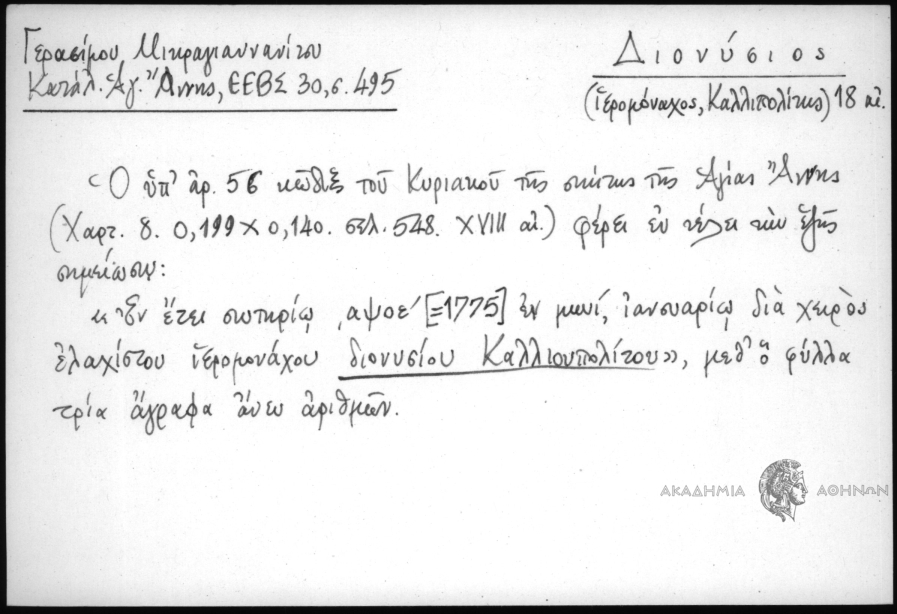 Γερασίμου Μικραγιαννανίτου
Κατάλ. Ἁγ. Ἄννης, ΕΕΒΣ 30, σ. 495
Διονύσιος
(ἱερομόναχος, Καλλιπολίτης) 18 αἰ.
Ὁ ὑπ' ἀρ. 56 κῶδιξ τοῦ Κυριακοῦ τῆς σκήτης τῆς Ἁγίας Ἄννης
(Χαρτ. 8. 0,199 × 0,140. σελ. 548. XVIII αἰ.) φέρει ἐν τέλει τὴν ἑξῆς
σημείωσιν:
«Ἐν ἔτει σωτηρίῳ ͵αψοε´ [=1775] ἐν μηνί, ἰανουαρίῳ διὰ χειρὸς
ἐλαχίστου ἱερομονάχου διονυσίου Καλλιουπολίτου», μεθ' ὃ φύλλα
τρία ἄγραφα ἄνευ ἀριθμῶν.
ΑΚΑΔΗΜΙΑ ΑΘΗΝΩΝ